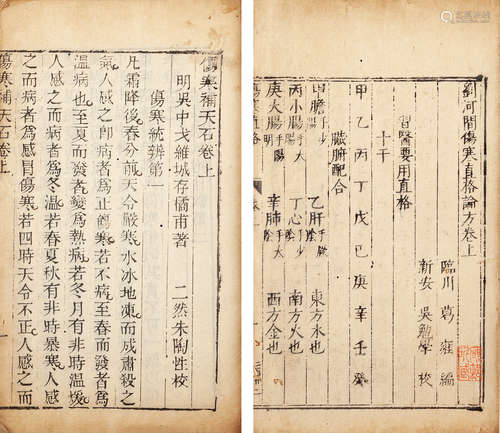 劉河間傷寒直格論方卷上
臨川 葛雍 編
新安 吳勉學 校
習醫要用直格
十干
甲乙丙丁戊己庚辛壬癸
臟腑配合
甲膽 乙肝 東方木也
丙小腸 丁心 南方火也
庚大腸 辛肺 西方金也
傷寒直格
傷寒補天石卷上
明吳中戈維城存橘甫著 二然朱陶性校
傷寒統辨第一
凡霜降後春分前天令嚴寒水冰地凍而成肅殺之
氣人感之即病者為正傷寒若不病至春而發者為
溫病也至夏而發者變為熱病若冬月有非時溫煖
人感之而病者為冬溫若春夏秋有非時暴寒人感
之而病者為感冒傷寒若四時天令不正人感之而
傷寒補天石卷上